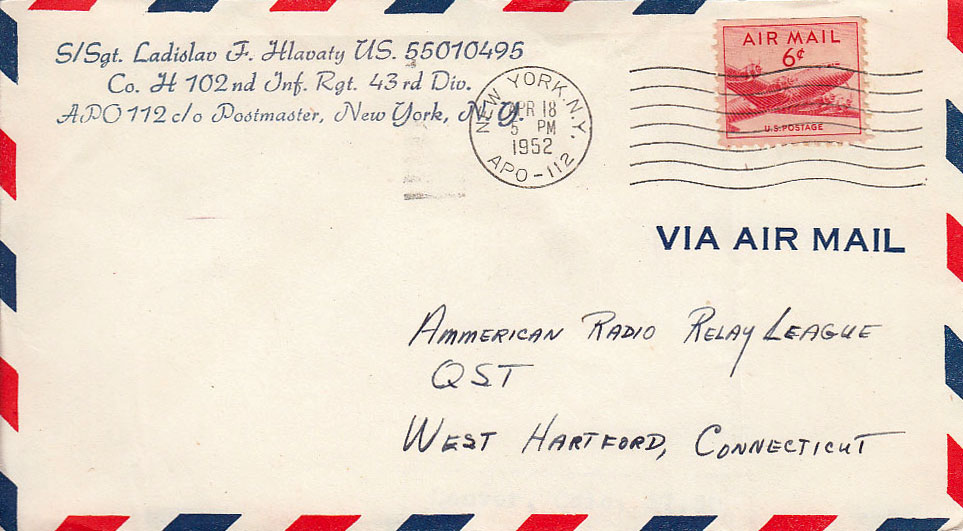 S/Sgt. Ladislav F. Hlavaty US. 55010495
Co. H 102nd Inf. Rgt. 43rd Div.
APO 112 c/o Postmaster, New York, N.Y.
NEW YORK, N.Y.
APR 18
5 PM
1952
APO-112
AIR MAIL
6¢
U.S. POSTAGE
VIA AIR MAIL
AMMERICAN RADIO RELAY LEAGUE
QST
WEST HARTFORD, CONNECTICUT